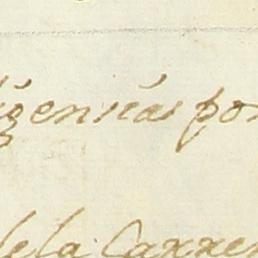 igensias por
dela Carre